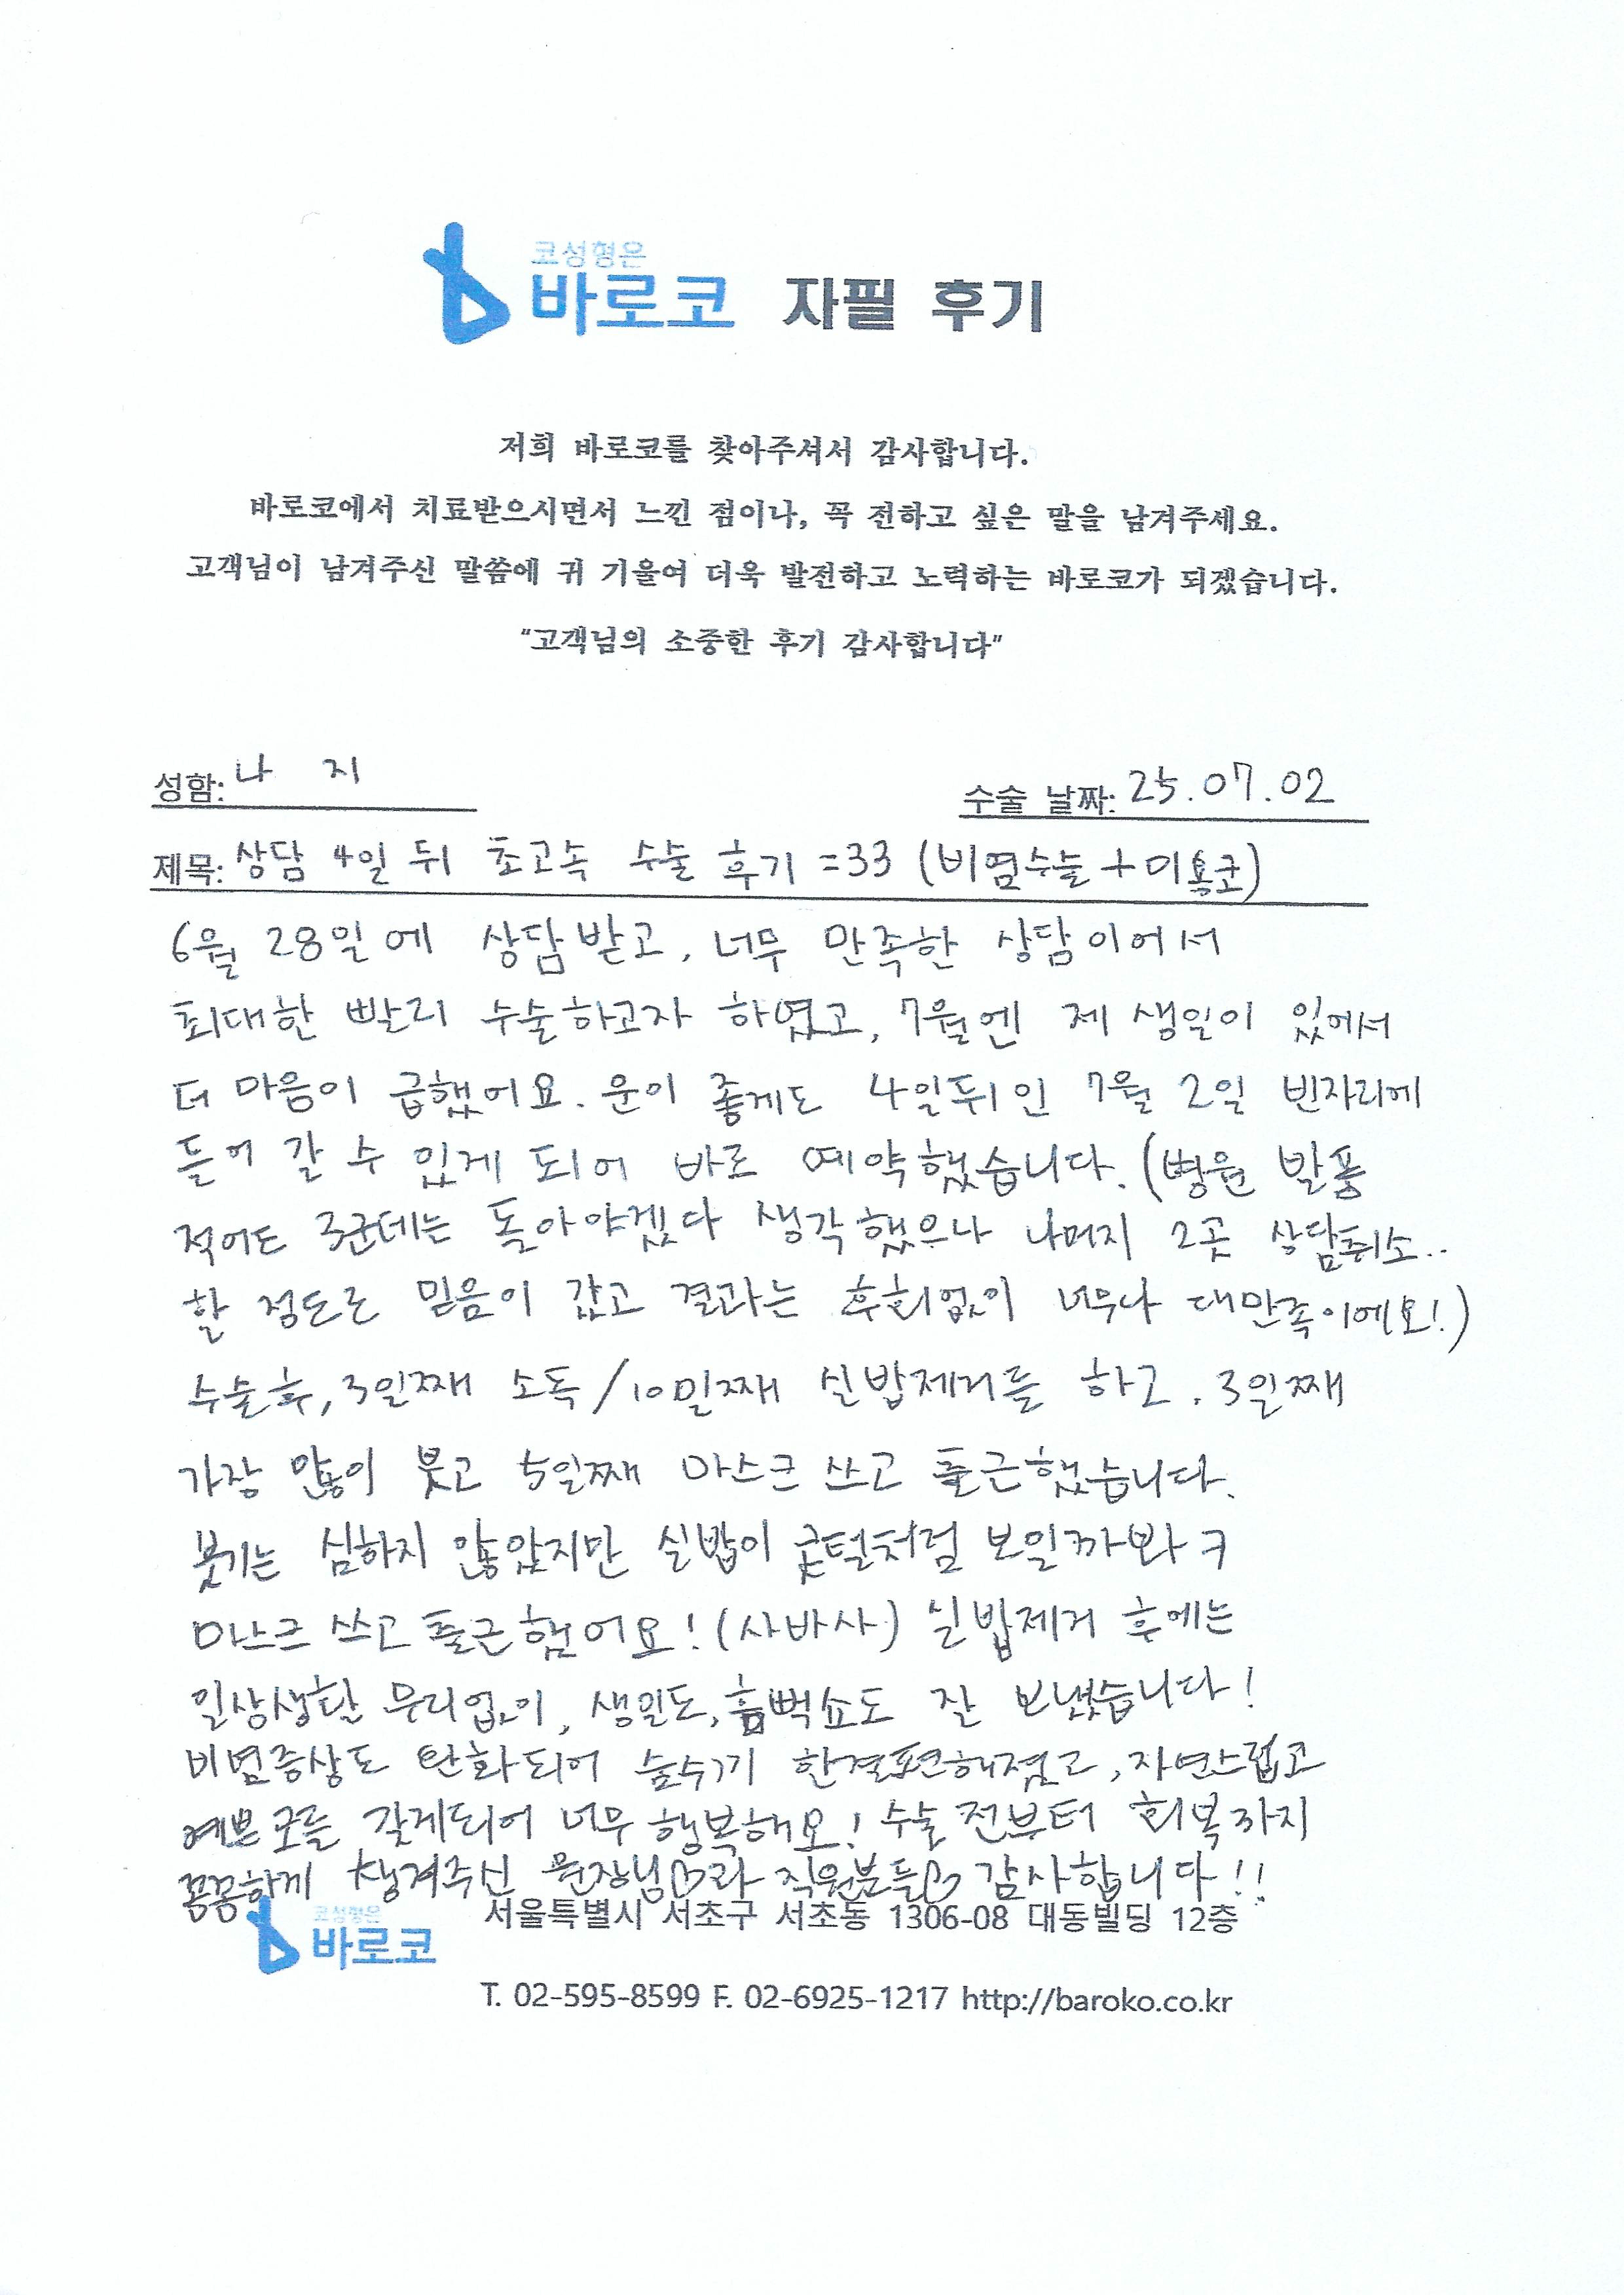 코성형은
바로코 자필 후기
저희 바로코를 찾아주셔서 감사합니다.
바로코에서 치료받으시면서 느낀 점이나, 꼭 전하고 싶은 말을 남겨주세요.
고객님이 남겨주신 말씀에 귀 기울여 더욱 발전하고 노력하는 바로코가 되겠습니다.
“고객님의 소중한 후기 감사합니다”
성함: 나 지 수술 날짜: 25.07.02
제목: 상담 4일 뒤 초고속 수술 후기 =33 (비염수술 + 미용코)
6월 28일에 상담받고, 너무 만족한 상담이어서
최대한 빨리 수술하고자 하였고, 7월엔 제 생일이 있에서
더 마음이 급했어요. 운이 좋게도 4일뒤인 7월 2일 빈자리에
들어 갈 수 있게 되어 바로 예약했습니다. (병원 발품
적어도 3군데는 돌아야겠다 생각했으나 나머지 2곳 상담취소..
할 정도로 믿음이 갔고 결과는 후회없이 너무나 대만족이에요!)
수술후, 3일째 소독/10일째 실밥제거를 하고, 3일째
가장 많이 붓고 5일째 마스크 쓰고 출근했습니다.
붓기는 심하지 않았지만 실밥이 콧털처럼 보일까봐 ㅋ
마스크 쓰고 출근했어요! (사바사) 실밥제거 후에는
일상생활 무리없이, 생일도, 흠뻑쇼도 잘 보냈습니다!
비염증상도 완화되어 숨쉬기 한결편해졌고, 자연스럽고
예쁜 코를 갖게되어 너무 행복해요! 수술 전부터 회복까지
꼼꼼하게 챙겨주신 원장님♡과 직원분들♡ 감사합니다!!
코성형은
바로코
서울특별시 서초구 서초동 1306-08 대동빌딩 12층
T. 02-595-8599 F. 02-6925-1217 http://baroko.co.kr